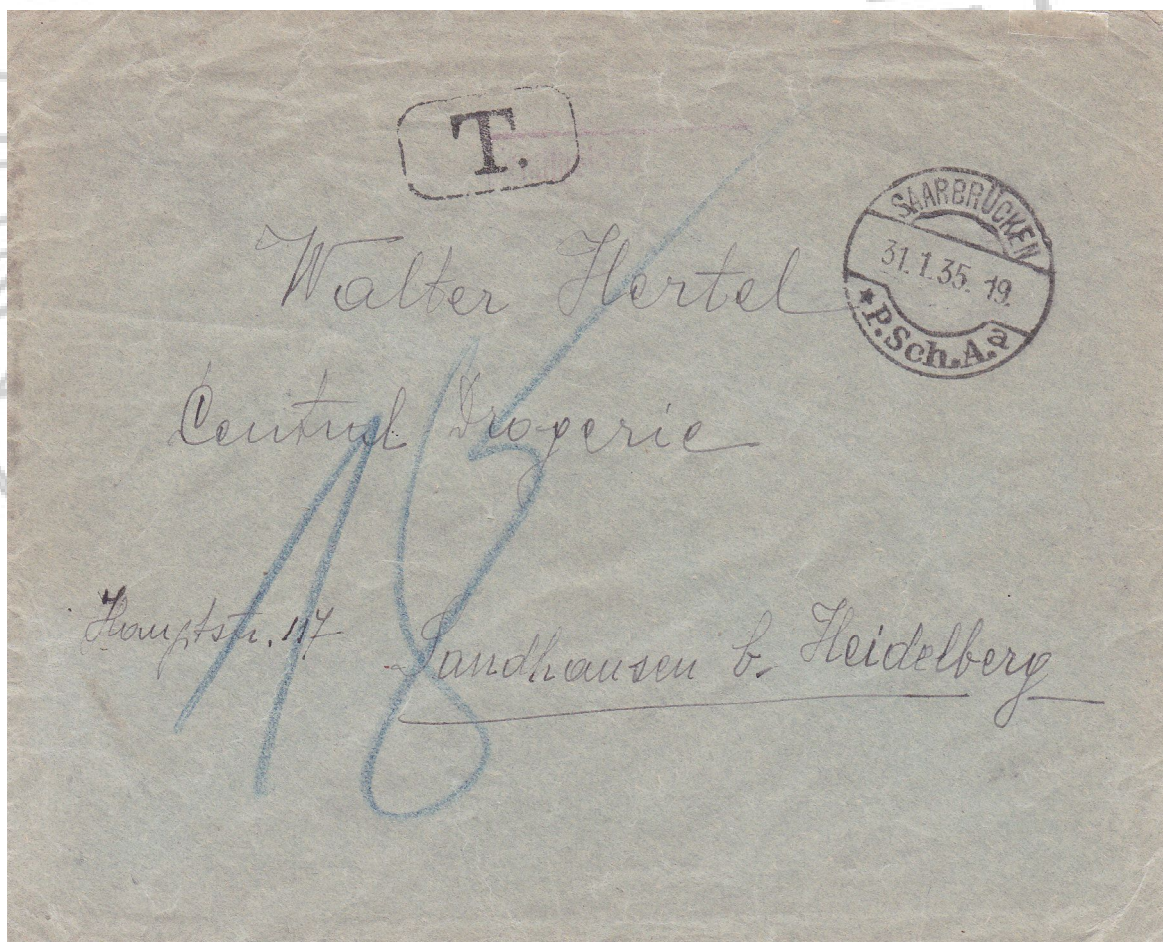 T.
SAARBRÜCKEN
31.1.35. 19.
* P.Sch.A.a
Walter Hertel
Central Drogerie
18
Hauptstr. 117
Sandhausen b. Heidelberg